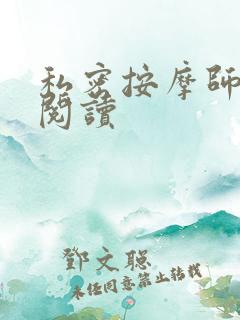 私密按摩師
閱讀
鄧文聰
未經同意禁止轉載